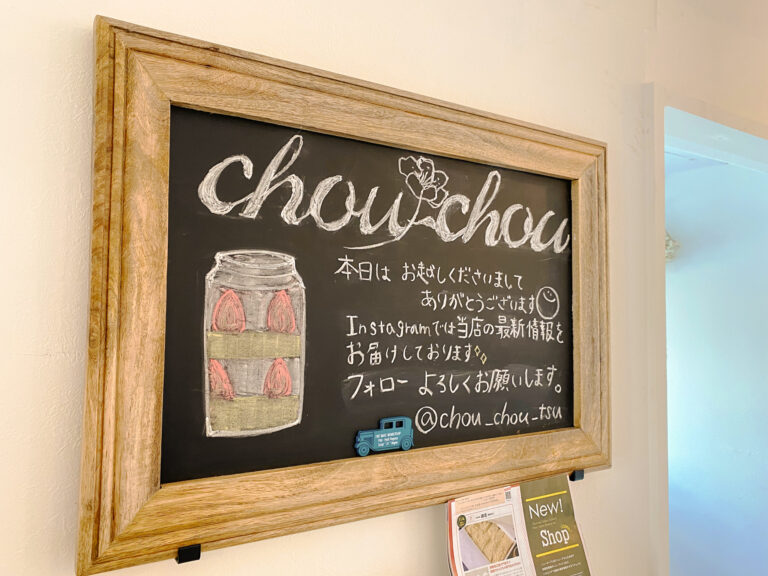 chou chou
本日は お越しくださいまして
ありがとうございます
Instagramでは当店の最新情報を
お届けしております
フォロー よろしくお願いします。
@chou_chou_tsu
New!
Shop